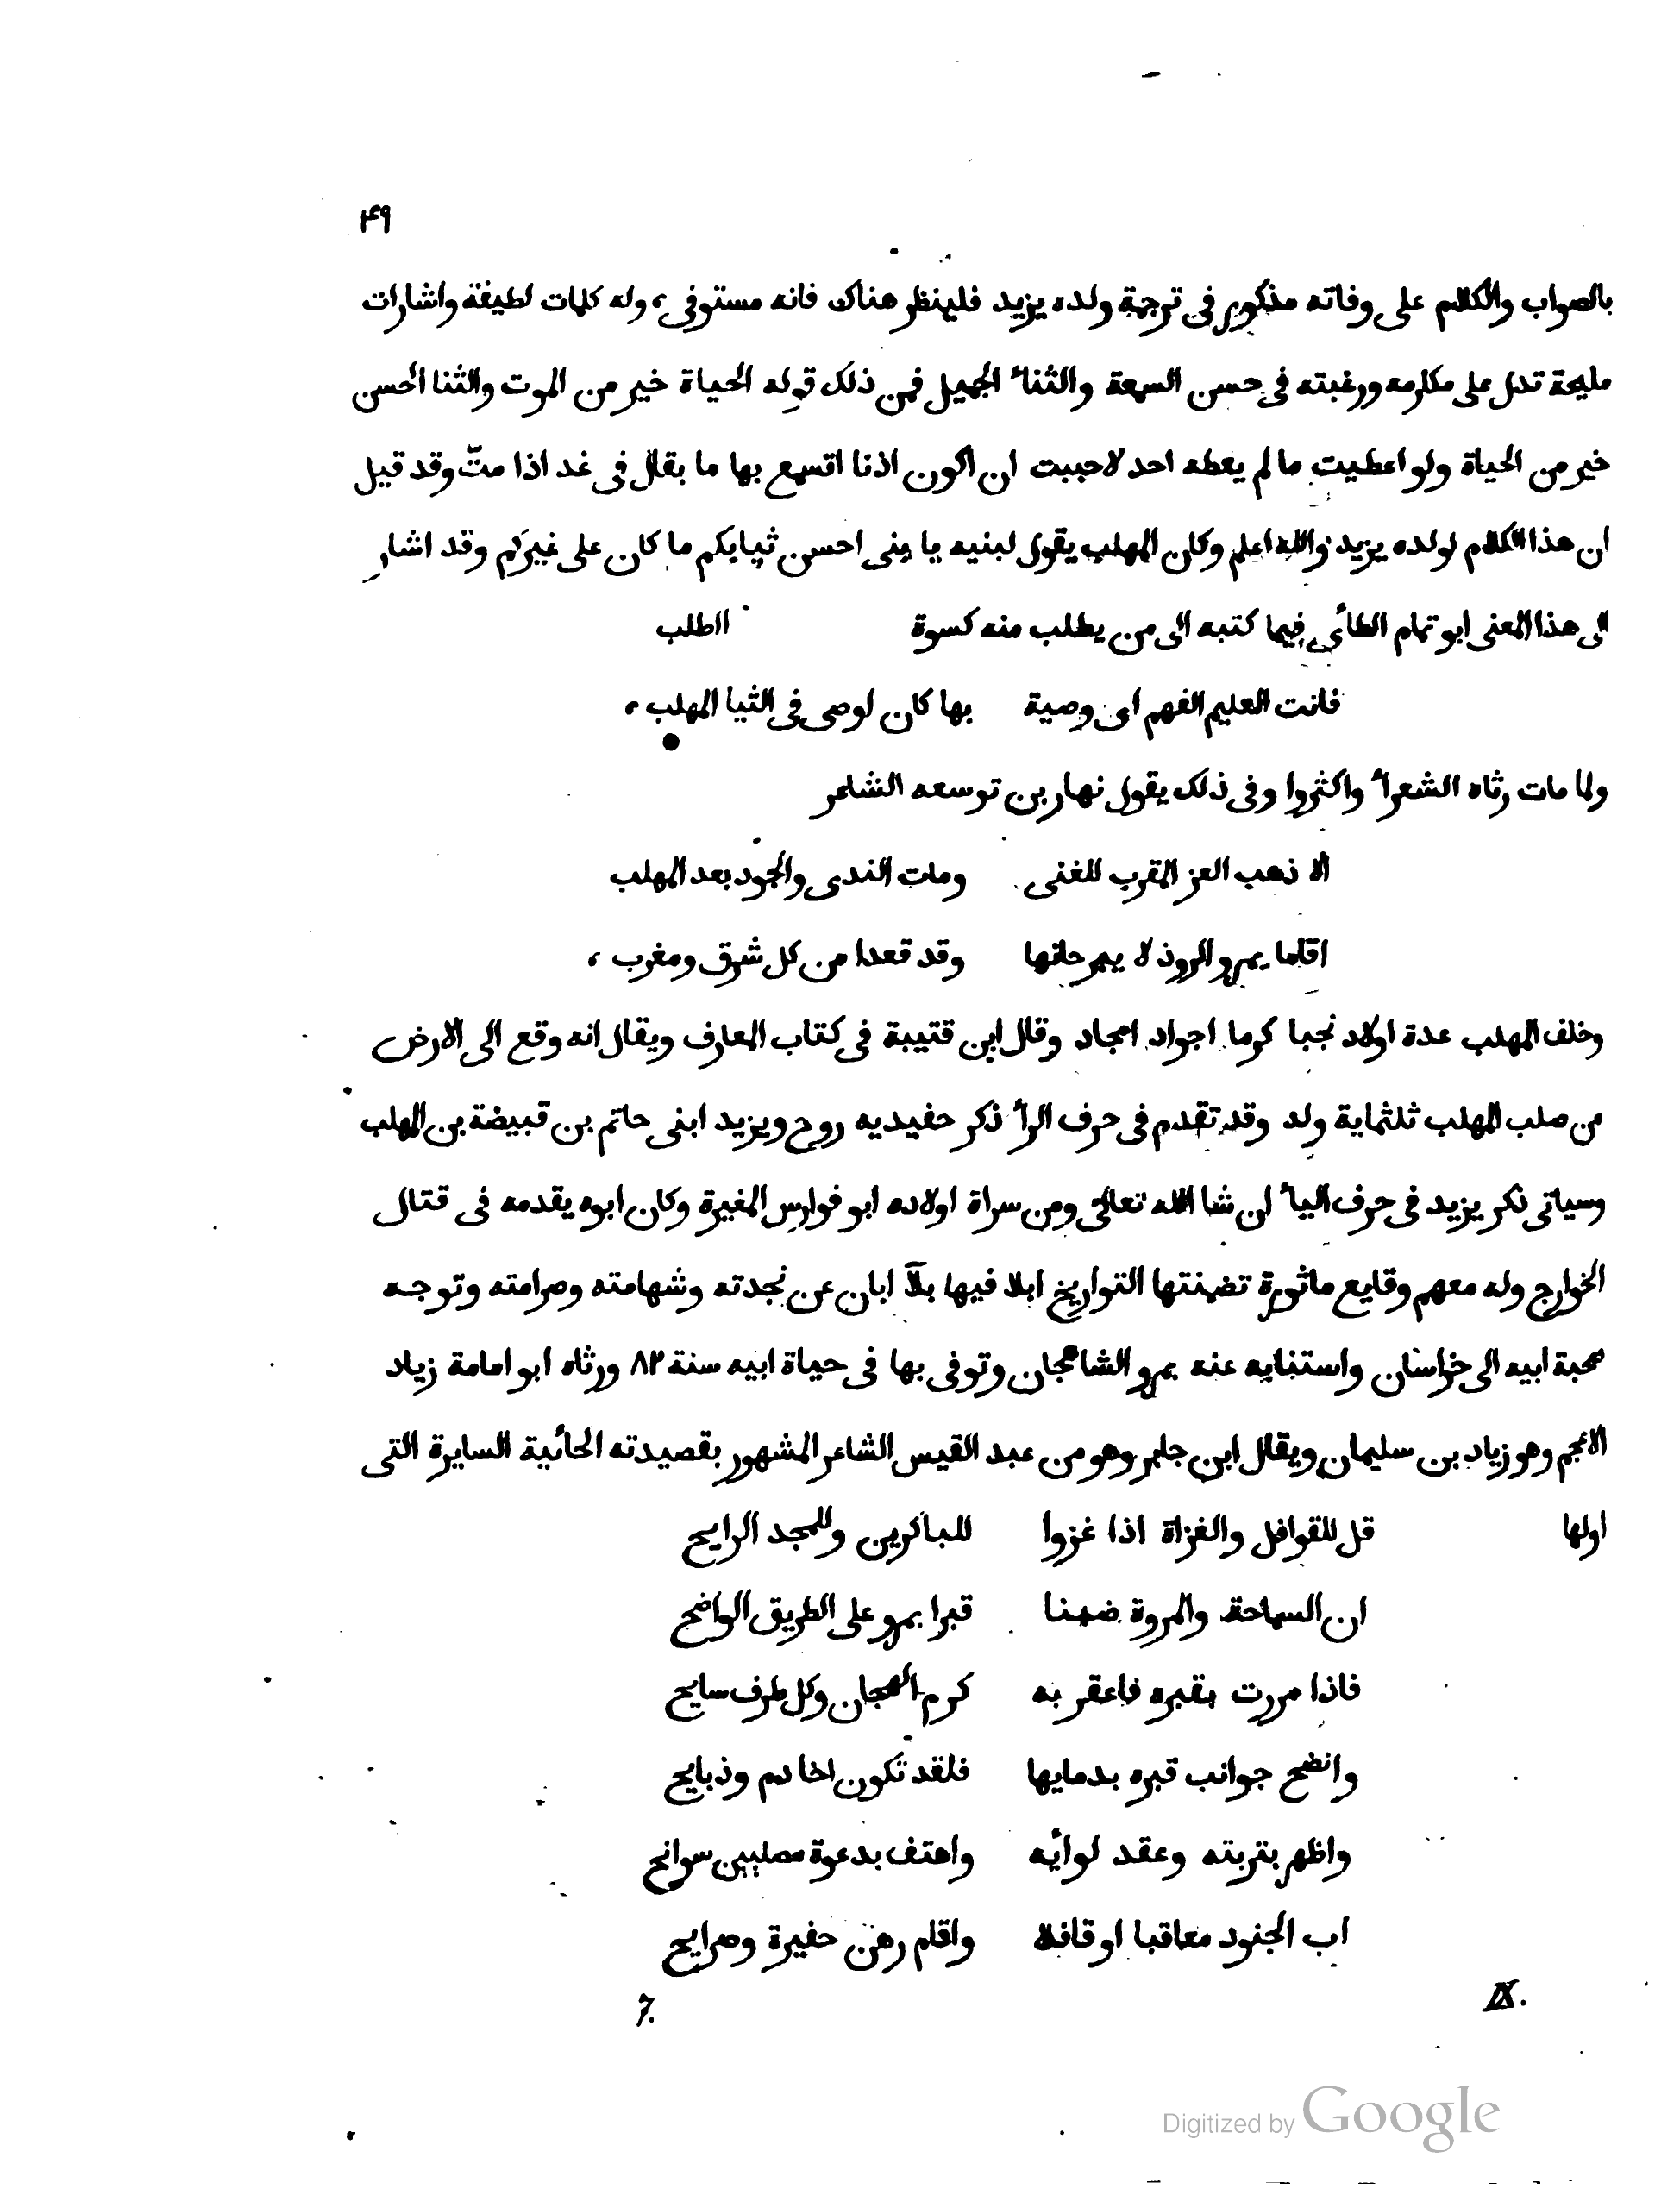 ۴۹
بالصواب والكلام على وفاته مذكور فى ترجمة ولده يزيد فلينظر هناك فانه مستوفى ، وله كلمات لطيفة واشارات
مليحة تدل على مكارمه ورغبته فى حسن السمعة والثنأ الجميل فمن ذلك قوله الحياة خير من الموت والثنا الحسن
خير من الحياة ولو اعطيت ما لم يعطه احد لاحببت ان اكون اذنا اتسمع بها ما يقال فى غد اذا متّ وقد قيل
ان هذا الكلام لولده يزيد والله اعلم وكان المهلب يقول لبنيه يا بنى احسن ثيابكم ما كان على غيركم وقد اشار
الى هذا المعنى ابو تمام الطائى فيما كتبه الى من يطلب منه كسوة الطلب
فانت العليم الفهم اى وصية بها كان لوصى فى الثيا المهلب ،
ولما مات رثاه الشعرأ واكثروا وفى ذلك يقول نهار بن توسعه الشاعر
الا ذهب العز المقرب للغنى ومات الندى والجود بعد المهلب
اقاما بمرو الروذ لا يبرحانها وقد قعدا من كل شرق ومغرب ،
وخلف المهلب عدة اولاد نجبا كرما اجواد امجاد وقال ابن قتيبة فى كتاب المعارف ويقال انه وقع الى الارض
من صلب المهلب ثلثماية ولد وقد تقدم فى حرف الرأ ذكر حفيديه روح ويزيد ابنى حاتم بن قبيضة بن المهلب
وسياتى ذكر يزيد فى حرف اليأ ان شا الله تعالى ومن سراة اولاده ابو فوارس المغيرة وكان ابوه يقدمه فى قتال
الخوارج وله معهم وقايع ماثورة تضمنتها التواريخ ابلا فيها بلآ ابان عن نجدته وشهامته وصرامته وتوجه
صحبة ابيه الى خراسان واستنابه عنه بمرو الشاهجان وتوفى بها فى حياة ابيه سنة ۸۲ ورثاه ابو امامة زياد
الاعجم وهو زياد بن سليمان ويقال ابن جابر وهو من عبد القيس الشاعر المشهور بقصيدته الحائية السايرة التى
اولها قل للقوافل والغزاة اذا غزوا للباكرين وللمجد الرايح
ان السماحة والمروة ضمنا قبرا بمرو على الطريق الواضح
فاذا مررت بقبره فاعقر به كرم الهجان وكل طرف سابح
وانضح جوانب قبره بدمايها فلقد تكون اخا دم وذبايح
واظهر بتربته وعقد لوائيه واهتف بدعوة مصلبين سوانح
اب الجنود معاقبا او قافلا واقام رهن حفيرة وضرايح
IX. 7.
Digitized by Google